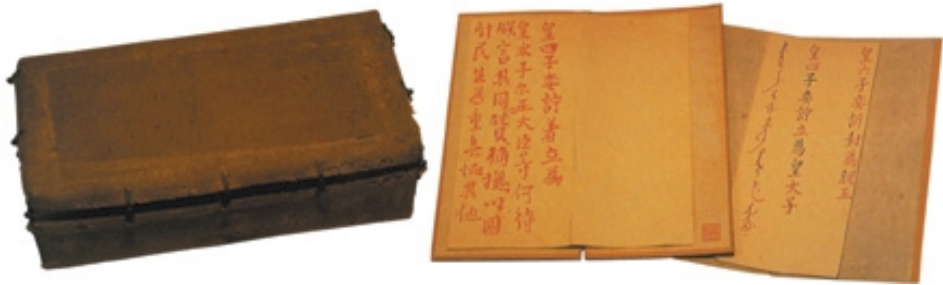 皇四子奕詝着立為
皇太子尔王大臣等何待
朕言其同心賛輔總以國
計民生為重無恤其他
皇六子奕訢封為親王
皇四子奕詝立為皇太子